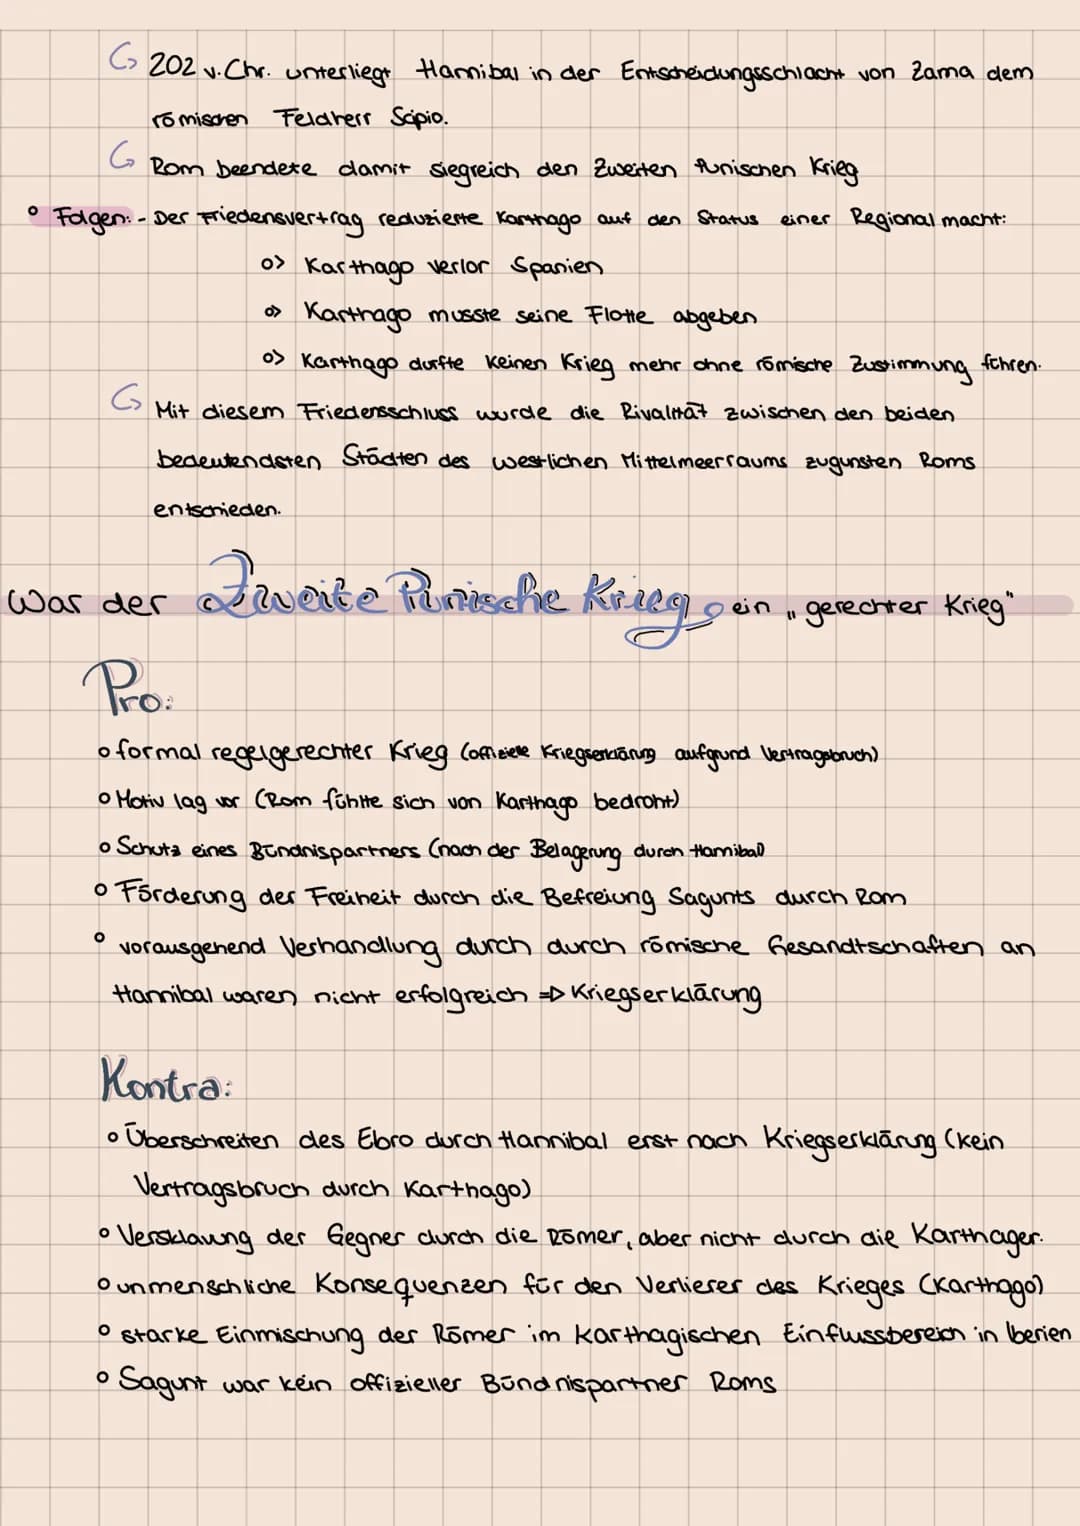 ↳ 202 v. Chr. unterliegt Hannibal in der Entscheidungsschlacht von Zama dem
römischen Feldherr Scipio.
↳ Rom beendete damit siegreich den Zweiten Punischen Krieg
° Folgen: - Der Friedensvertrag reduzierte Karthago auf den Status einer Regionalmacht:
o> Karthago verlor Spanien
o> Karthago musste seine Flotte abgeben
o> Karthago durfte keinen Krieg mehr ohne römische Zustimmung führen.
↳ Mit diesem Friedensschluss wurde die Rivalität zwischen den beiden
bedeutendsten Städten des westlichen Mittelmeerraums zugunsten Roms
entschieden.
War der Zweite Punische Krieg ein „gerechter Krieg"
Pro:
o formal regelgerechter Krieg (offizielle Kriegserklärung aufgrund Vertragsbruch)
o Motiv lag vor (Rom fühlte sich von Karthago bedroht)
o Schutz eines Bündnispartners (nach der Belagerung durch Hannibal)
o Förderung der Freiheit durch die Befreiung Sagunts durch Rom
o vorausgehend Verhandlung durch durch römische Gesandtschaften an
Hannibal waren nicht erfolgreich => Kriegserklärung
Kontra:
o Überschreiten des Ebro durch Hannibal erst nach Kriegserklärung (kein
Vertragsbruch durch Karthago)
o Versklavung der Gegner durch die Römer, aber nicht durch die Karthager.
o unmenschliche Konsequenzen für den Verlierer des Krieges (Karthago)
o starke Einmischung der Römer im Karthagischen Einflussbereich in Iberien
o Sagunt war kein offizieller Bündnispartner Roms